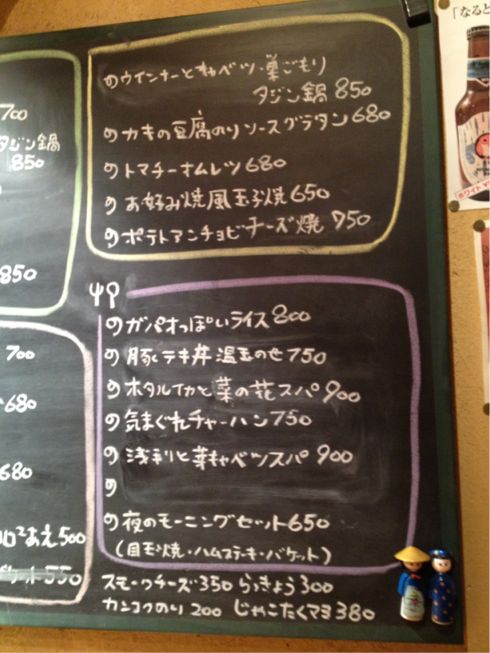 のウインナーとキャベツ・巣ごもり
タジン鍋 850
のカキの豆腐のりソースグラタン 680
のトマチーオムレツ 680
のお好み焼風玉子焼 650
のポテトアンチョビチーズ焼 750
のガパオっぽいライス 800
の豚テキ丼温玉のせ 750
のホタルイカと菜の花スパ 900
の気まぐれチャーハン 750
の浅利と菜キャベツスパ 900
の
の夜のモーニングセット 650
(目玉焼・ハムステーキ・バケット)
スモークチーズ 350 らっきょう 300
カンコクのり 200 じゃこたくマヨ 380
700
タジン鍋
850
850
700
680
680
あえ 500
550
「なると
ホワイト